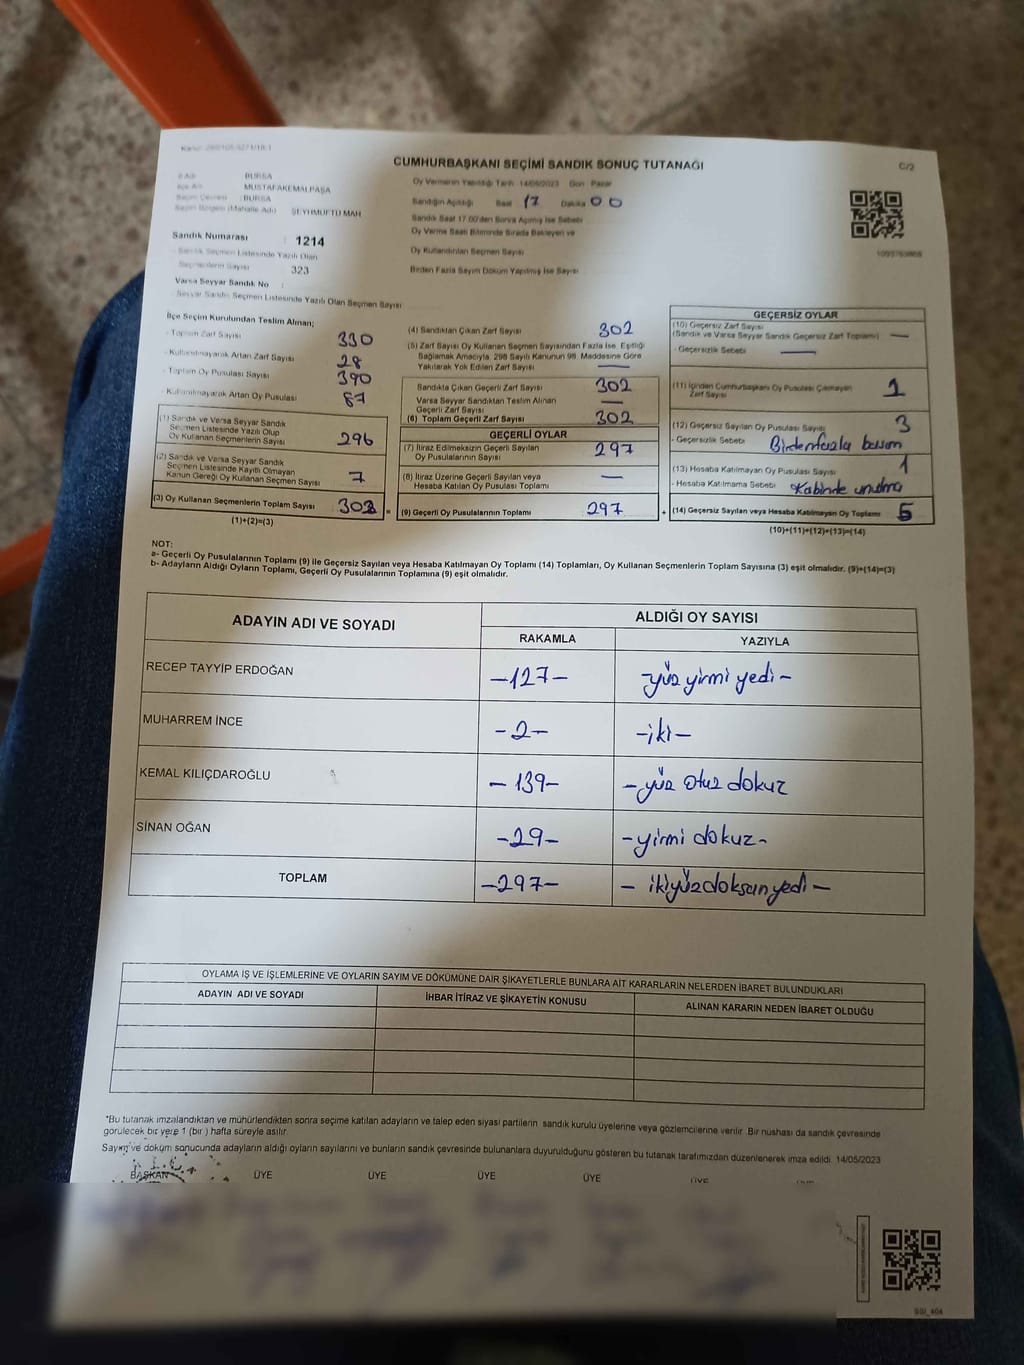 CUMHURBAŞKANI SEÇİMİ SANDIK SONUÇ TUTANAĞI
C/2
İl Adı : BURSA
İlçe Adı : MUSTAFAKEMALPAŞA
Seçim Çevresi : BURSA
Seçim Bölgesi (Mahalle Adı) : ŞEYHMÜFTÜ MAH.
Sandık Numarası : 1214
Sandık Seçmen Listesinde Yazılı Olan
Seçmenlerin Sayısı : 323
Varsa Seyyar Sandık No :
Seyyar Sandık Seçmen Listesinde Yazılı Olan Seçmen Sayısı
Oy Vermenin Yapıldığı Tarih 14/05/2023 Gün Pazar
Sandığın Açıldığı Saat 17 Dakika 00
Sandık Saat 17.00'den Sonra Açılmış İse Sebebi
Oy Verme Saati Bitiminde Sırada Bekleyen ve
Oy Kullandırılan Seçmen Sayısı
Birden Fazla Sayım Döküm Yapılmış İse Sayısı
İlçe Seçim Kurulundan Teslim Alınan;
- Toplam Zarf Sayısı 330
- Kullanılmayarak Artan Zarf Sayısı 28
- Toplam Oy Pusulası Sayısı 390
- Kullanılmayarak Artan Oy Pusulası 87
(1) Sandık ve Varsa Seyyar Sandık
Seçmen Listesinde Yazılı Olup
Oy Kullanan Seçmenlerin Sayısı 296
(2) Sandık ve Varsa Seyyar Sandık
Seçmen Listesinde Kayıtlı Olmayan
Kanun Gereği Oy Kullanan Seçmen Sayısı 7
(3) Oy Kullanan Seçmenlerin Toplam Sayısı =
(1)+(2)=(3)
(4) Sandıktan Çıkan Zarf Sayısı 302
(5) Zarf Sayısı Oy Kullanan Seçmen Sayısından Fazla İse, Eşitliği
Sağlamak Amacıyla, 298 Sayılı Kanunun 98. Maddesine Göre
Yakılarak Yok Edilen Zarf Sayısı —
Sandıkta Çıkan Geçerli Zarf Sayısı 302
Varsa Seyyar Sandıktan Teslim Alınan
Geçerli Zarf Sayısı —
(6) Toplam Geçerli Zarf Sayısı 302
GEÇERLİ OYLAR
(7) İtiraz Edilmeksizin Geçerli Sayılan
Oy Pusulalarının Sayısı 297
(8) İtiraz Üzerine Geçerli Sayılan veya
Hesaba Katılan Oy Pusulası Toplamı —
(9) Geçerli Oy Pusulalarının Toplamı 297 +
GEÇERSİZ OYLAR
(10) Geçersiz Zarf Sayısı
(Sandık ve Varsa Seyyar Sandık Geçersiz Zarf Toplamı) —
- Geçersizlik Sebebi —
(11) İçinden Cumhurbaşkanı Oy Pusulası Çıkmayan
Zarf Sayısı 1
(12) Geçersiz Sayılan Oy Pusulası Sayısı 3
- Geçersizlik Sebebi Birdenfazla basım
(13) Hesaba Katılmayan Oy Pusulası Sayısı 1
- Hesaba Katılmama Sebebi Kabinde unutma
(14) Geçersiz Sayılan veya Hesaba Katılmayan Oy Toplamı 5
(10)+(11)+(12)+(13)=(14)
NOT:
a- Geçerli Oy Pusulalarının Toplamı (9) ile Geçersiz Sayılan veya Hesaba Katılmayan Oy Toplamı (14) Toplamları, Oy Kullanan Seçmenlerin Toplam Sayısına (3) eşit olmalıdır. (9)+(14)=(3)
b- Adayların Aldığı Oyların Toplamı, Geçerli Oy Pusulalarının Toplamına (9) eşit olmalıdır.
ADAYIN ADI VE SOYADI
ALDIĞI OY SAYISI
RAKAMLA YAZIYLA
RECEP TAYYİP ERDOĞAN -127- -yüz yirmi yedi-
MUHARREM İNCE -2- -iki-
KEMAL KILIÇDAROĞLU -139- -yüz otuz dokuz
SİNAN OĞAN -29- -yirmi dokuz-
TOPLAM -297- - ikiyüzdoksanyedi -
OYLAMA İŞ VE İŞLEMLERİNE VE OYLARIN SAYIM VE DÖKÜMÜNE DAİR ŞİKAYETLERLE BUNLARA AİT KARARLARIN NELERDEN İBARET BULUNDUKLARI
ADAYIN ADI VE SOYADI İHBAR İTİRAZ VE ŞİKAYETİN KONUSU ALINAN KARARIN NEDEN İBARET OLDUĞU
*Bu tutanak imzalandıktan ve mühürlendikten sonra seçime katılan adayların ve talep eden siyasi partilerin sandık kurulu üyelerine veya gözlemcilerine verilir. Bir nüshası da sandık çevresinde
görülecek bir yere 1 (bir) hafta süreyle asılır.
Sayım ve döküm sonucunda adayların aldığı oyların sayılarını ve bunların sandık çevresinde bulunanlara duyurulduğunu gösteren bu tutanak tarafımızdan düzenlenerek imza edildi. 14/05/2023
BAŞKAN ÜYE ÜYE ÜYE ÜYE ÜYE